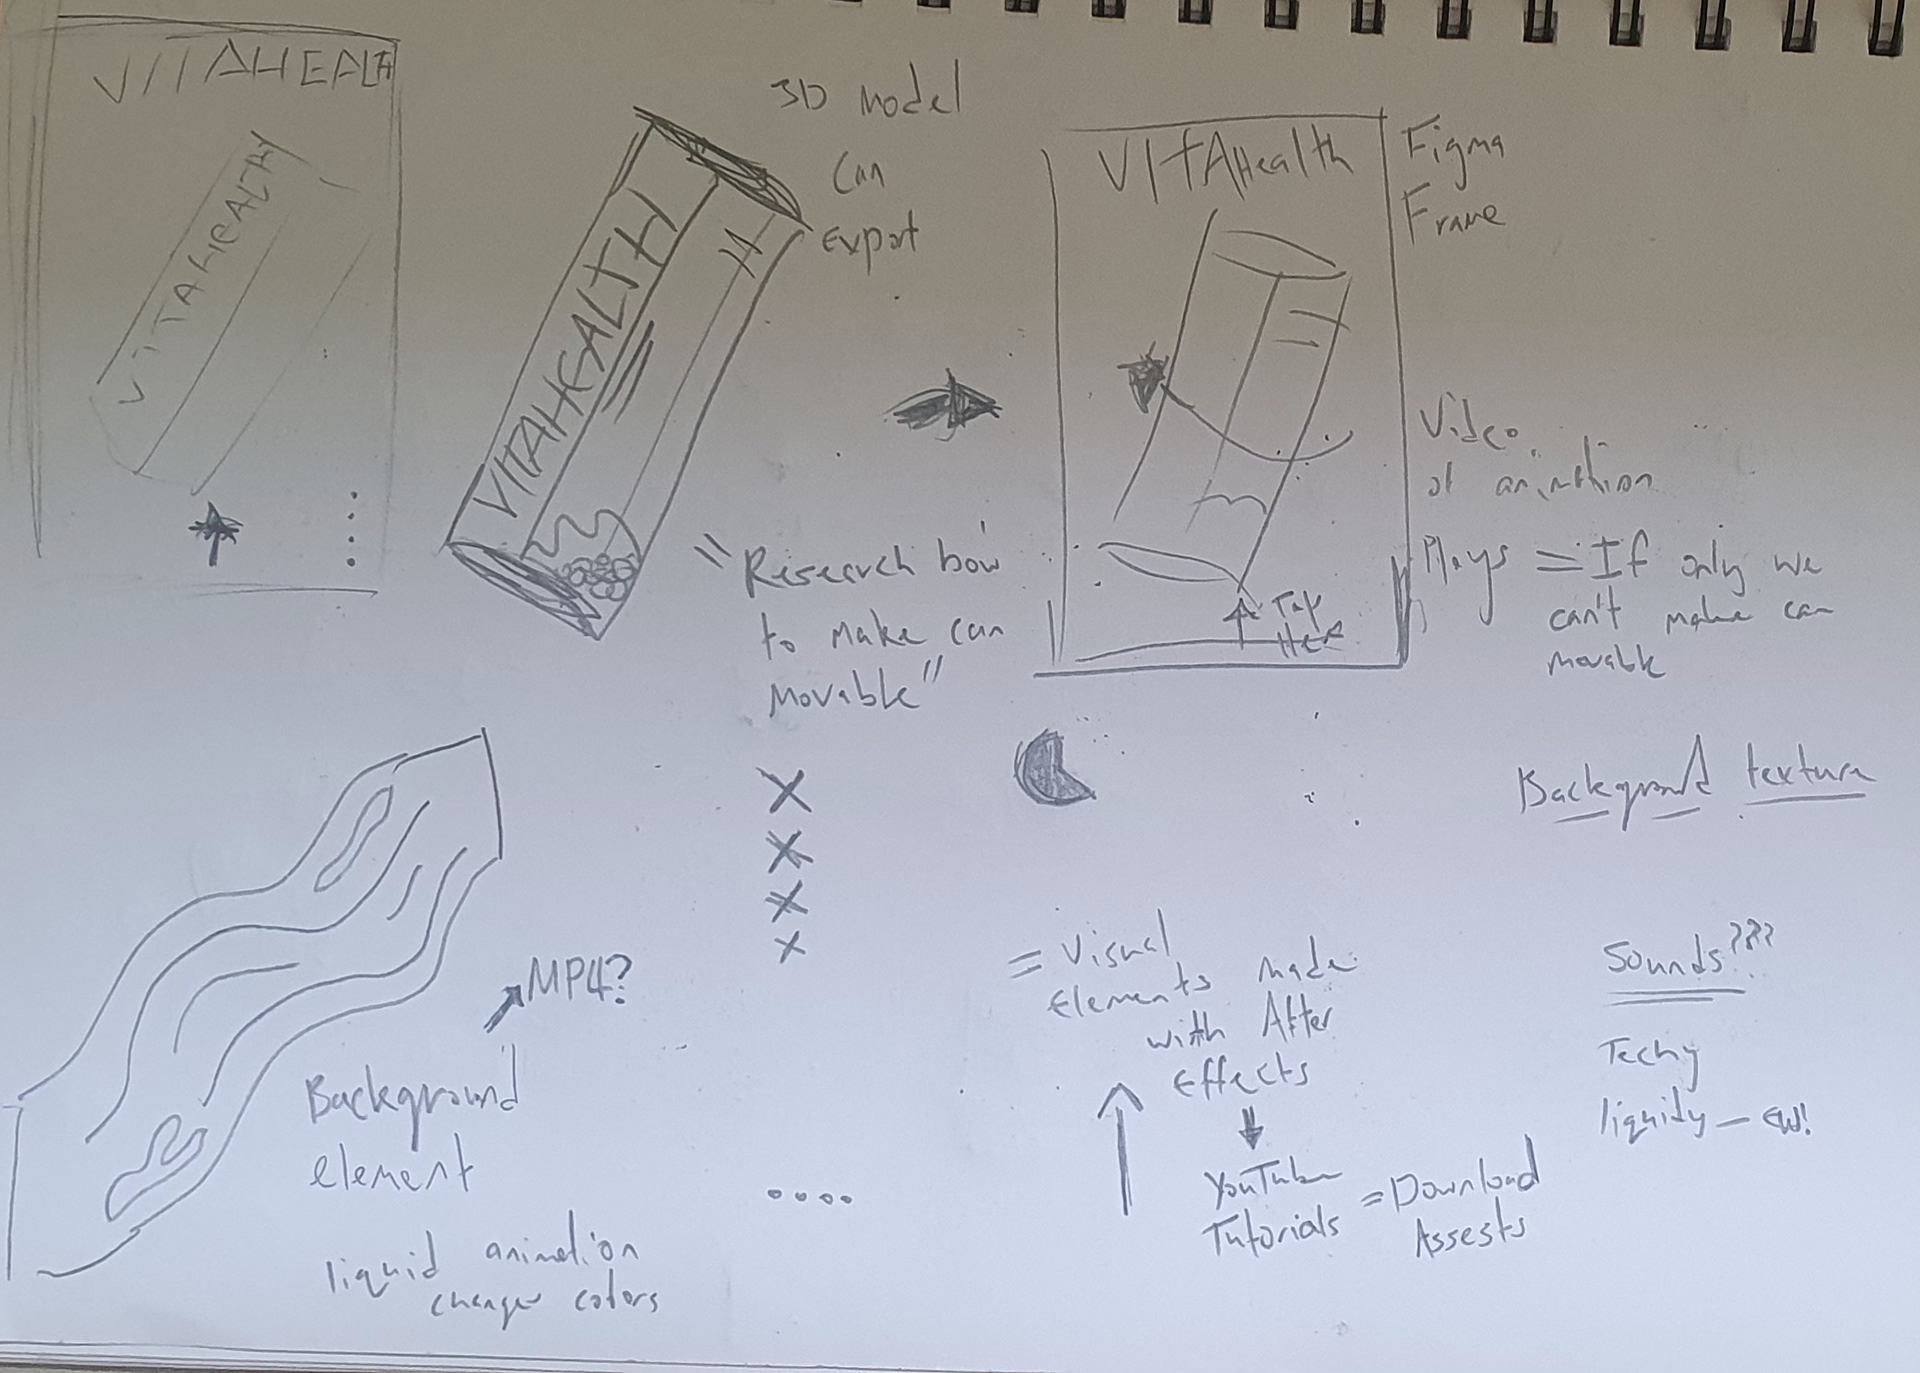 VITAHEALTH
VITAHEALTH
VITAHEALTH
3D Model
Can
Export
VITAHealth
Figma
Frame
Tap
Here
Video
of animation
Plays = If only we
can't make can
movable
"Research how
to make can
movable"
Background texture
MP4?
Background
element
liquid animation
changes colors
= Visual
Elements made
with After
Effects
YouTube
Tutorials
= Download
Assests
Sounds???
Techy
liquidy - EW!